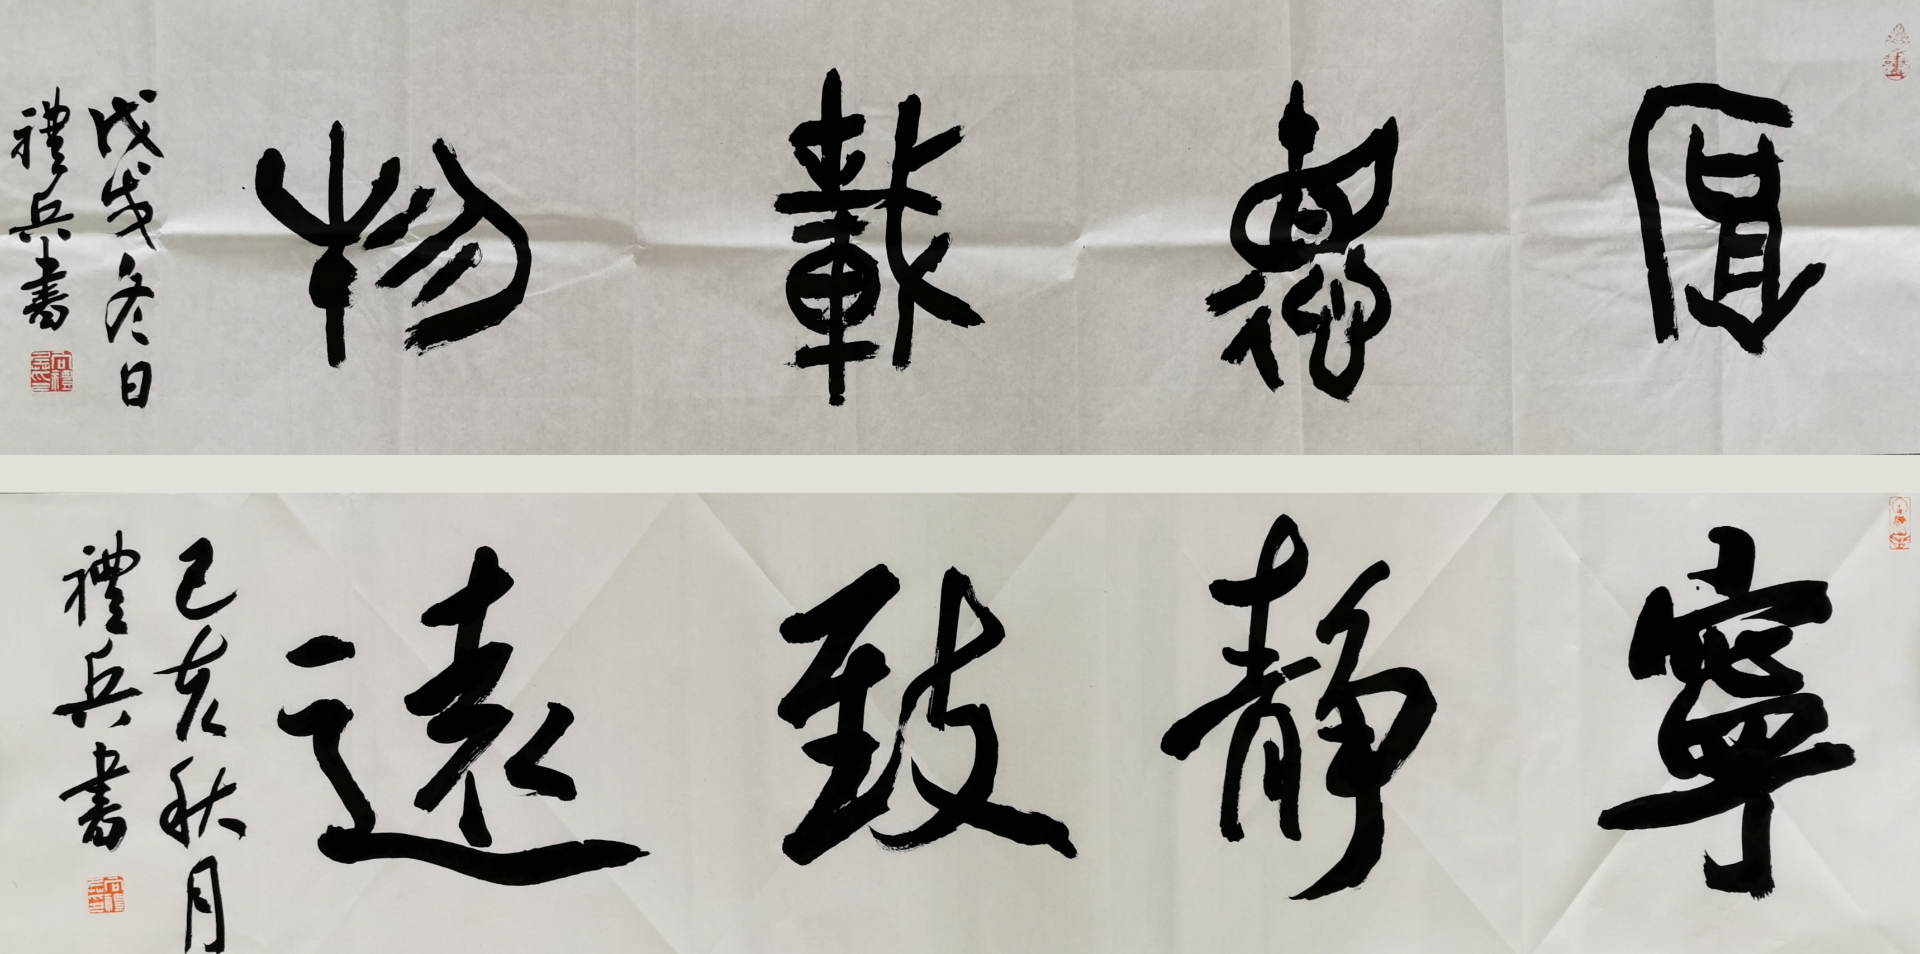 厚德載物
戊戌冬日
禮兵書
寧靜致遠
己亥秋月
禮兵書